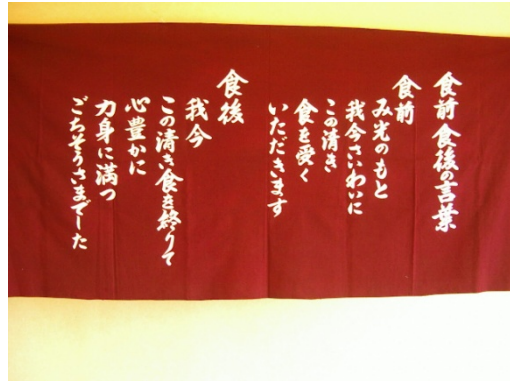 食前食後の言葉
食前
み光のもと
我今さいわいに
この清き
食を受く
いただきます
食後
我今
この清き食を終りて
心豊かに
力身に満つ
ごちそうさまでした